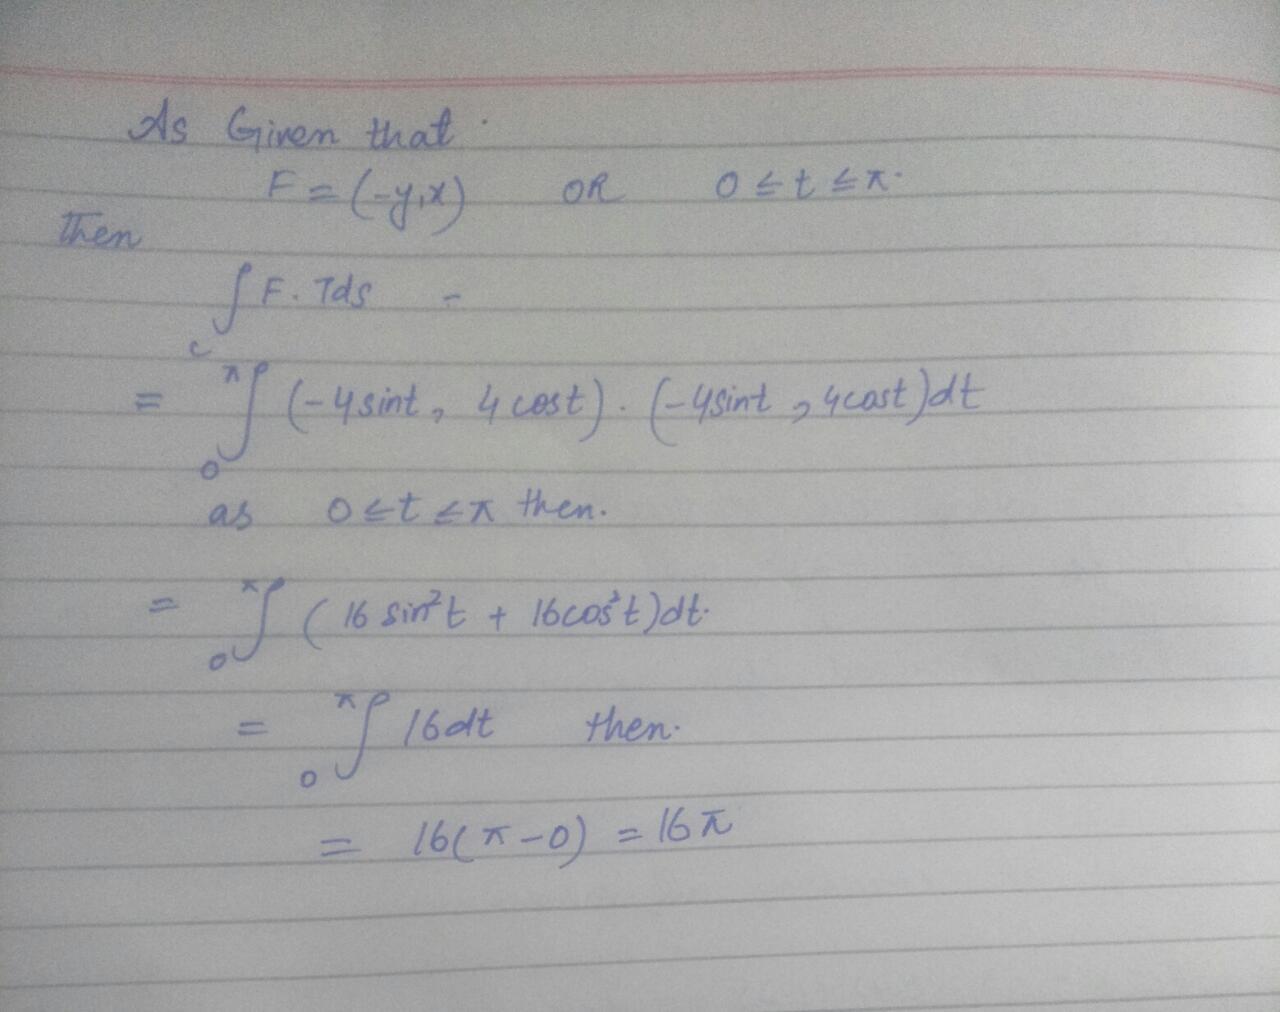 As Given that
F = (-y,x) OR 0 ≤ t ≤ π.
then
∫c F. Tds =
= ∫0^π (-4sint, 4cost). (-4sint, 4cost)dt
as 0 ≤ t ≤ π then.
= ∫0^π (16 sin²t + 16cos²t)dt.
= ∫0^π 16dt then.
= 16(π-0) = 16π